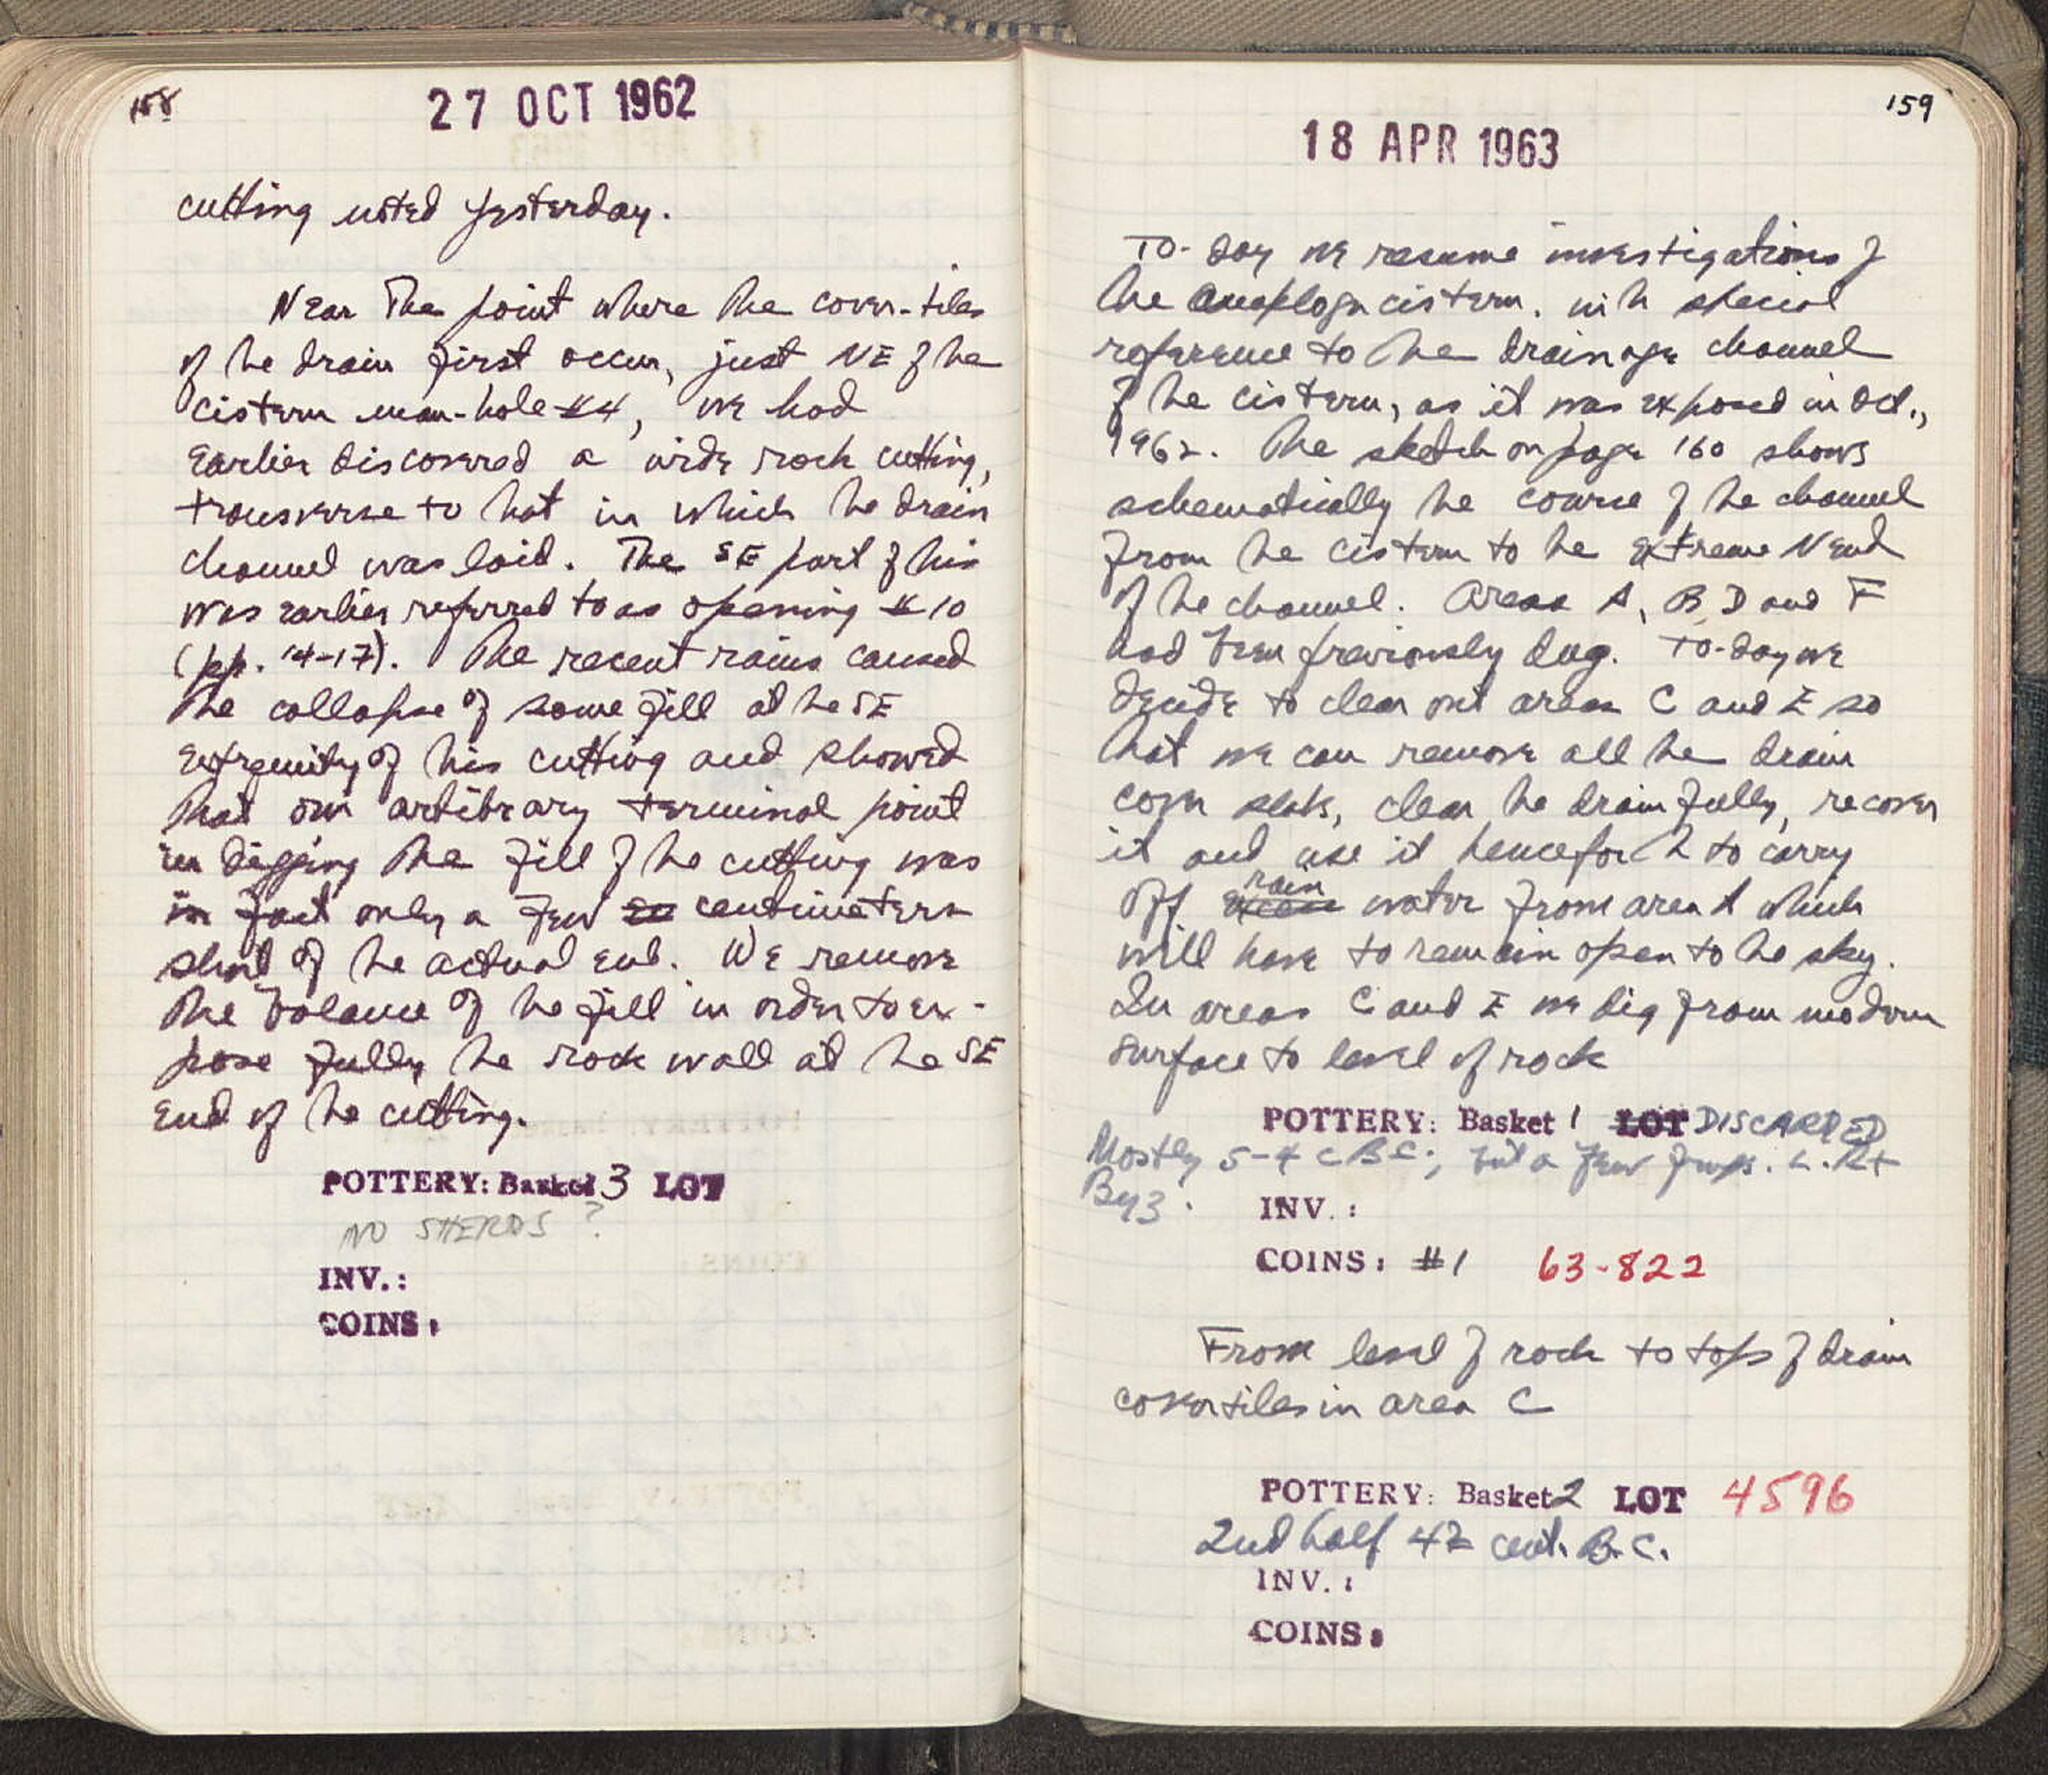 158
27 OCT 1962
cutting noted yesterday.
Near the point where the cover-tiles
of the drain first occur, just NE of the
cistern man-hole #4, we had
earlier discovered a wide rock cutting,
transverse to that in which the drain
channel was laid. The SE part of this
was earlier referred to as opening #10
(pp. 14-17). The recent rains caused
the collapse of some fill at the SE
extremity of this cutting and showed
that our artibrary terminal point
in digging the fill of the cutting was
in fact only a few centimeters
short of the actual end. We remove
the balance of the fill in order to ex-
pose fully the rock wall at the SE
end of the cutting.
POTTERY: Basket 3 LOT
NO SHERDS?
INV.:
COINS:
159
18 APR 1963
To-day we resume investigations of
the cistern, with special
reference to the drainage channel
of the cistern, as it was exposed in Oct.,
1962. The sketch on page 160 shows
schematically the course of the channel
from the cistern to the extreme N end
of the channel. Areas A, B, D and F
had been previously dug. To-day we
decide to clear out areas C and E so
that we can remove all the drain
cover slabs, clear the drain fully, recover
it and use it henceforth to carry
off rain water from area A which
will have to remain open to the sky.
In areas C and E we dig from modern
surface to level of rock
POTTERY: Basket 1 LOT DISCARDED
Mostly 5-4 c BC; but a few frags. L. R +
Byz.
INV.:
COINS: #1 63-822
From level of rock to tops of drain
cover tiles in area C
POTTERY: Basket 2 LOT 4596
2nd half 4th cent. B.C.
INV.:
COINS: